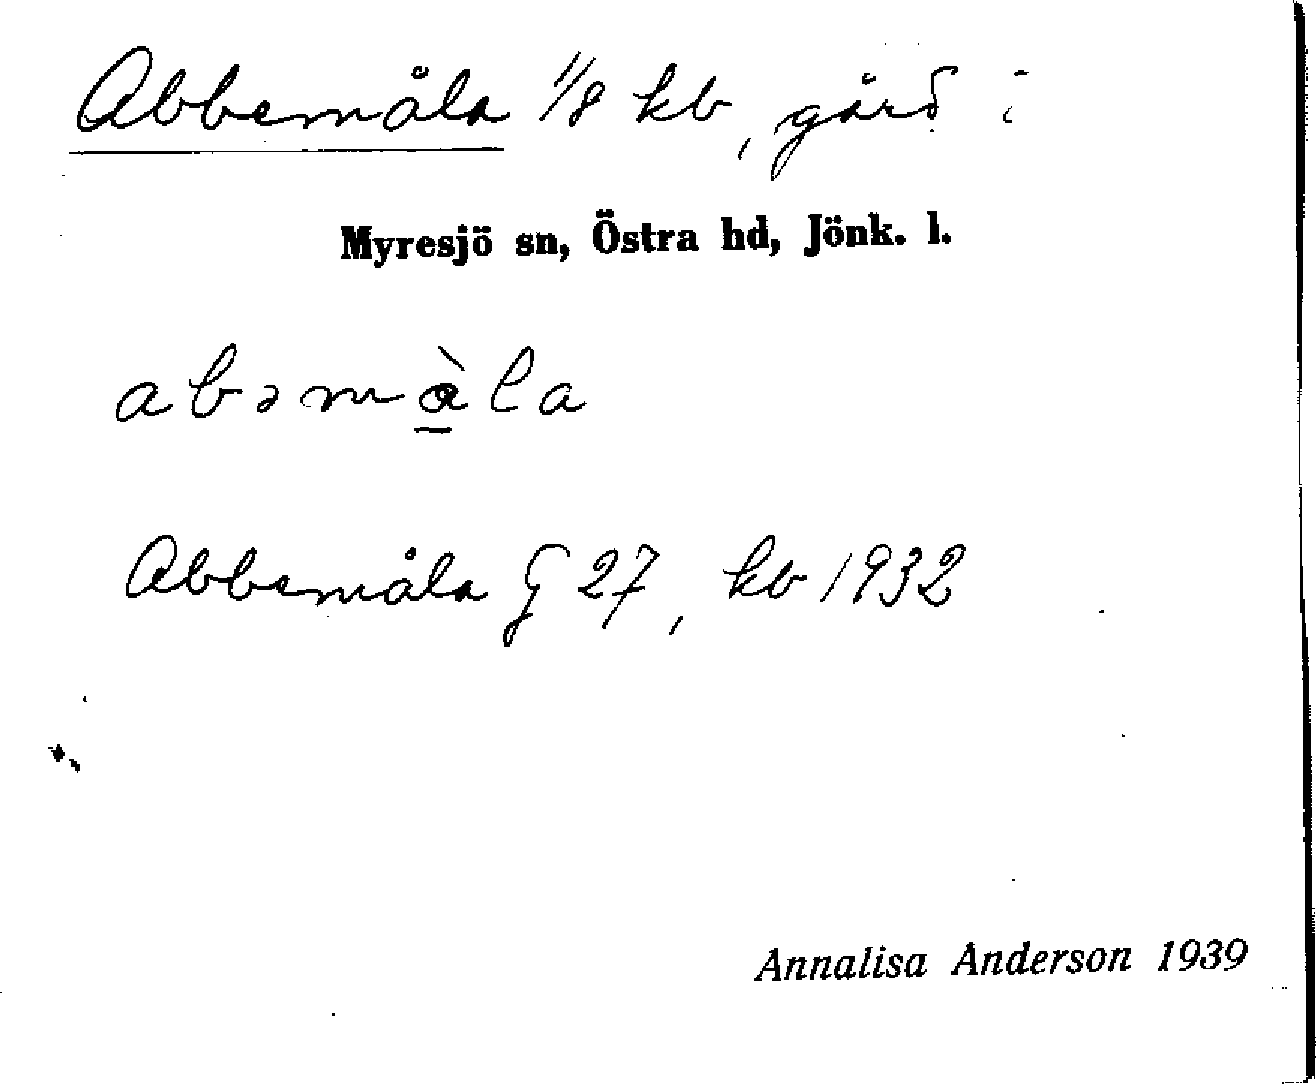 Abbemåla 1/8 kb, gård i
Myresjö sn, Östra hd, Jönk. l.
abəmà̱la
Abbemåla G 27, kb 1932
Annalisa Anderson 1939